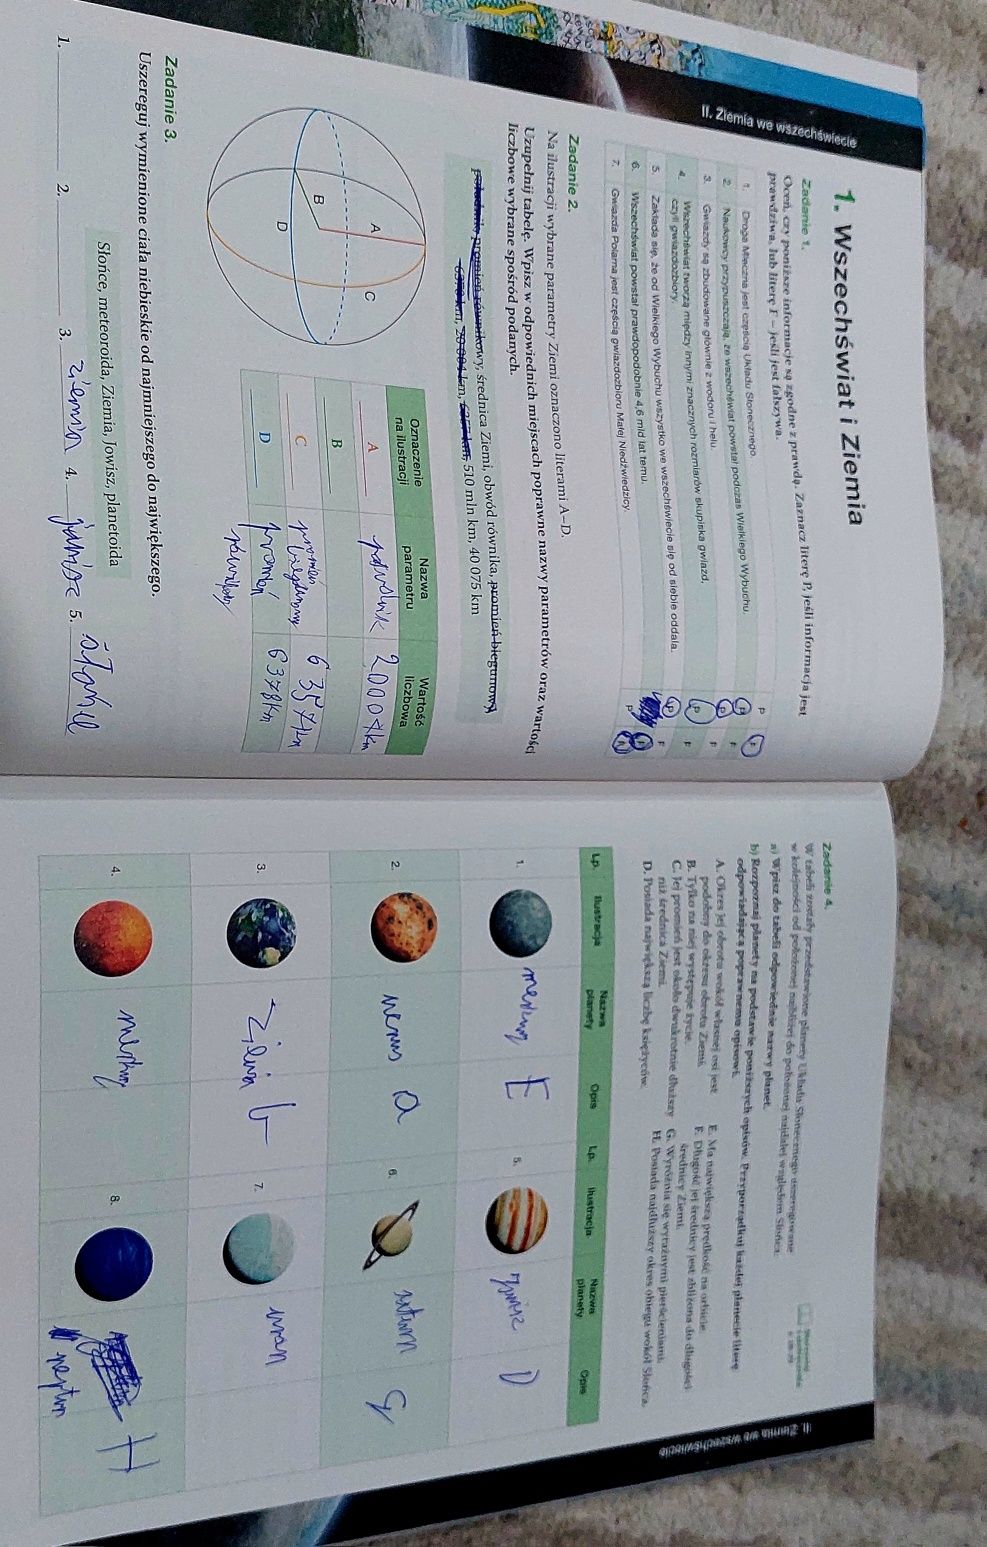 II. Ziemia we wszechświecie
1. Wszechświat i Ziemia
Zadanie 1.
Oceń, czy poniższe informacje są zgodne z prawdą. Zaznacz literę P, jeśli informacja jest
prawdziwa, lub literę F – jeśli jest fałszywa.
1. Droga Mleczna jest częścią Układu Słonecznego. P F
2. Naukowcy przypuszczają, że wszechświat powstał podczas Wielkiego Wybuchu. P F
3. Gwiazdy są zbudowane głównie z wodoru i helu. P F
4. Wszechświat tworzą między innymi znacznych rozmiarów skupiska gwiazd,
czyli gwiazdozbiory. P F
5. Zakłada się, że od Wielkiego Wybuchu wszystko we wszechświecie się od siebie oddala. P F
6. Wszechświat powstał prawdopodobnie 4,6 mld lat temu. F
7. Gwiazda Polarna jest częścią gwiazdozbioru Małej Niedźwiedzicy. P
Zadanie 2.
Na ilustracji wybrane parametry Ziemi oznaczono literami A–D.
Uzupełnij tabelę. Wpisz w odpowiednich miejscach poprawne nazwy parametrów oraz wartości
liczbowe wybrane spośród podanych.
południk, promień równikowy, średnica Ziemi, obwód równika, promień biegunowy
6378 km, 20 004 km, 6357 km, 510 mln km, 40 075 km
A
C
B
D
Oznaczenie
na ilustracji
Nazwa
parametru
Wartość
liczbowa
A południk 20004km
B
C promień biegunowy 6357km
D promień równikowy 6378km
Zadanie 3.
Uszereguj wymienione ciała niebieskie od najmniejszego do największego.
Słońce, meteoroida, Ziemia, Jowisz, planetoida
1. 2. 3. ziemia 4. 5.
Zadanie 4.
W tabeli zostały przedstawione planety Układu Słonecznego uszeregowane
w kolejności od położonej najbliżej do położonej najdalej względem Słońca.
a) Wpisz do tabeli odpowiednie nazwy planet.
b) Rozpoznaj planety na podstawie poniższych opisów. Przyporządkuj każdej planecie literę
odpowiadającą poprawnemu opisowi.
A. Okres jej obrotu wokół własnej osi jest
podobny do okresu obrotu Ziemi.
B. Tylko na niej występuje życie.
C. Jej promień jest około dwukrotnie dłuższy
niż średnica Ziemi.
D. Posiada największą liczbę księżyców.
E. Ma największą prędkość na orbicie.
F. Długość jej średnicy jest zbliżona do długości
średnicy Ziemi.
G. Wyróżnia się wyraźnymi pierścieniami.
H. Posiada najdłuższy okres obiegu wokół Słońca.
Lp. Ilustracja Nazwa planety Opis Lp. Ilustracja Nazwa planety Opis
1. E 5. D
2. wenus a 6. saturn G
3. b 7. uran
4. 8. neptun H
II. Ziemia we wszechświecie